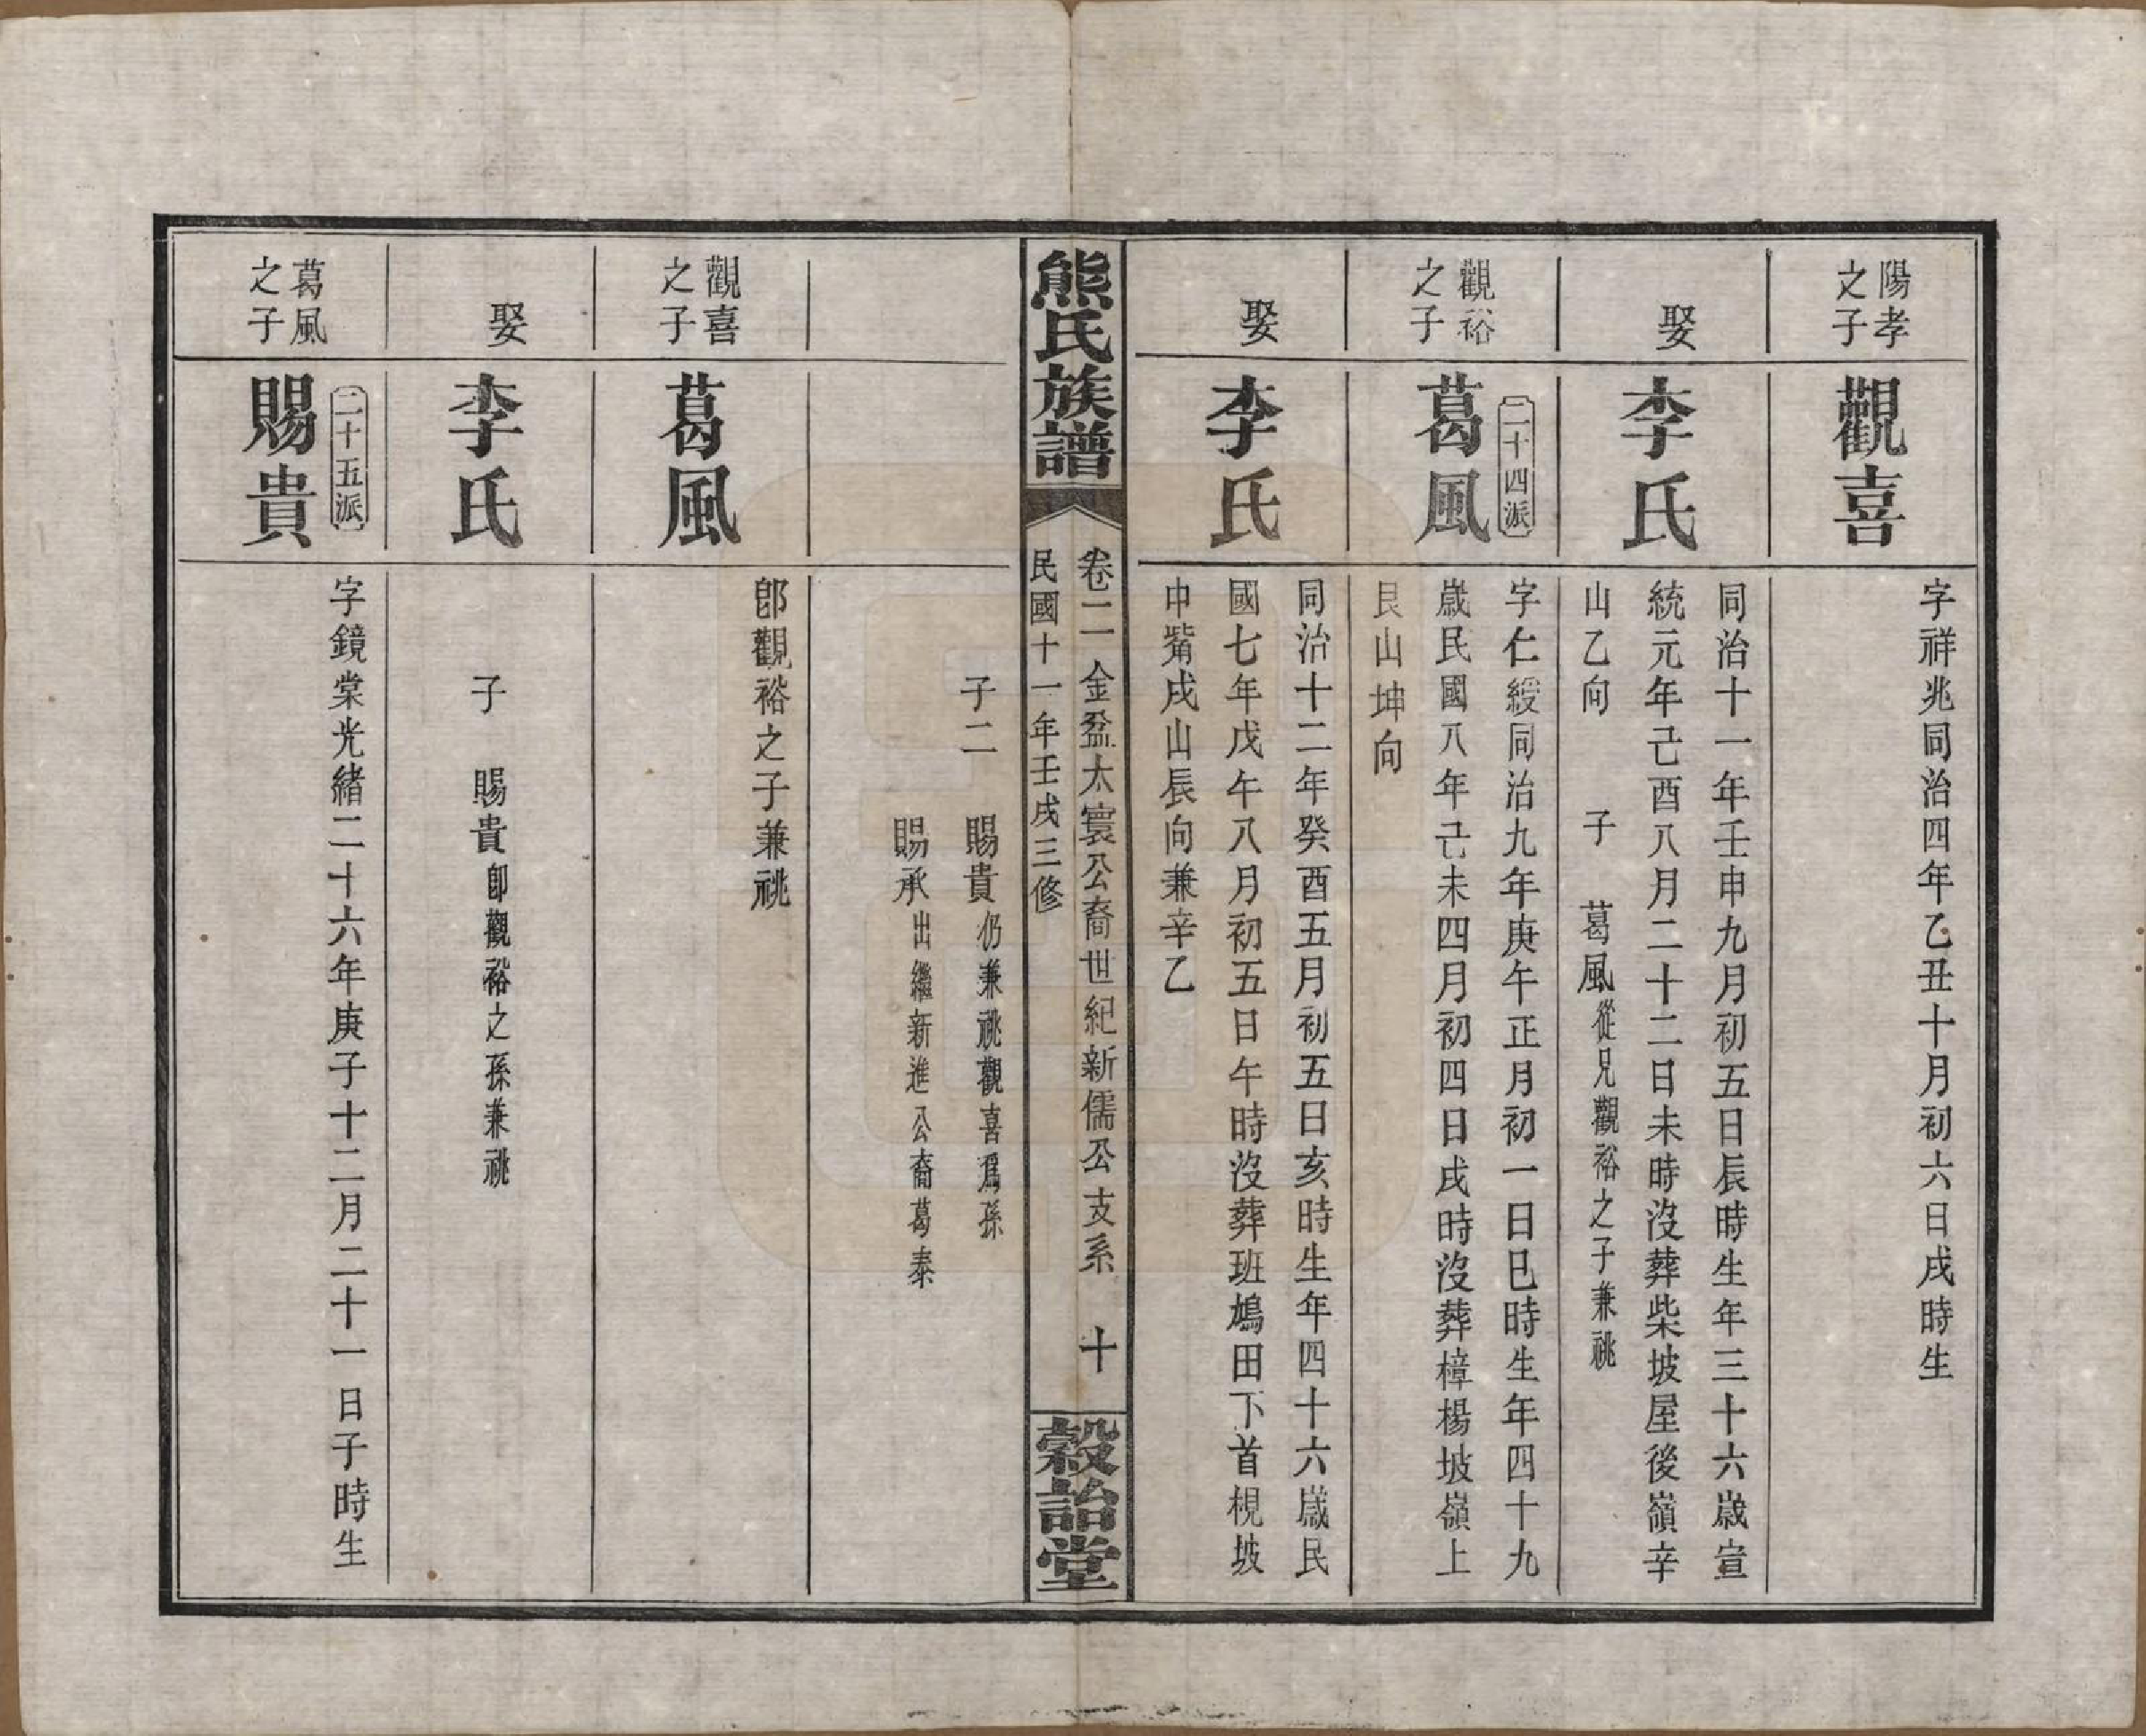 陽孝
之子
觀喜
字祥兆同治四年乙丑十月初六日戌時生
娶
李氏
同治十一年壬申九月初五日辰時生年三十六歲宣
統元年己酉八月二十二日未時沒葬柴坡屋後嶺辛
山乙向　子　葛風從兄觀裕之子兼祧
觀裕
之子
二十四派
葛風
字仁綬同治九年庚午正月初一日巳時生年四十九
歲民國八年己未四月初四日戌時沒葬樟楊坡嶺上
艮山坤向
娶
李氏
同治十二年癸酉五月初五日亥時生年四十六歲民
國七年戊午八月初五日午時沒葬班鳩田下首梘坡
中嘴戌山辰向兼辛乙
熊氏族譜
卷二　金盆太寰公裔世紀新儒公支系　十
民國十一年壬戌三修
穀詒堂
子二　賜貴仍兼祧觀喜爲孫
賜承出繼新進公裔葛泰
觀喜
之子
葛風
卽觀裕之子兼祧
娶
李氏
子　賜貴卽觀裕之孫兼祧
葛風
之子
二十五派
賜貴
字鏡棠光緒二十六年庚子十二月二十一日子時生